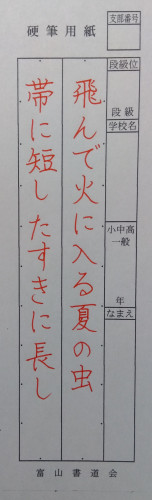 硬筆用紙
支部番号
段級位
段級
学校名
小中高
一般
年
なまえ
飛んで火に入る夏の虫
帯に短したすきに長し
富山書道会